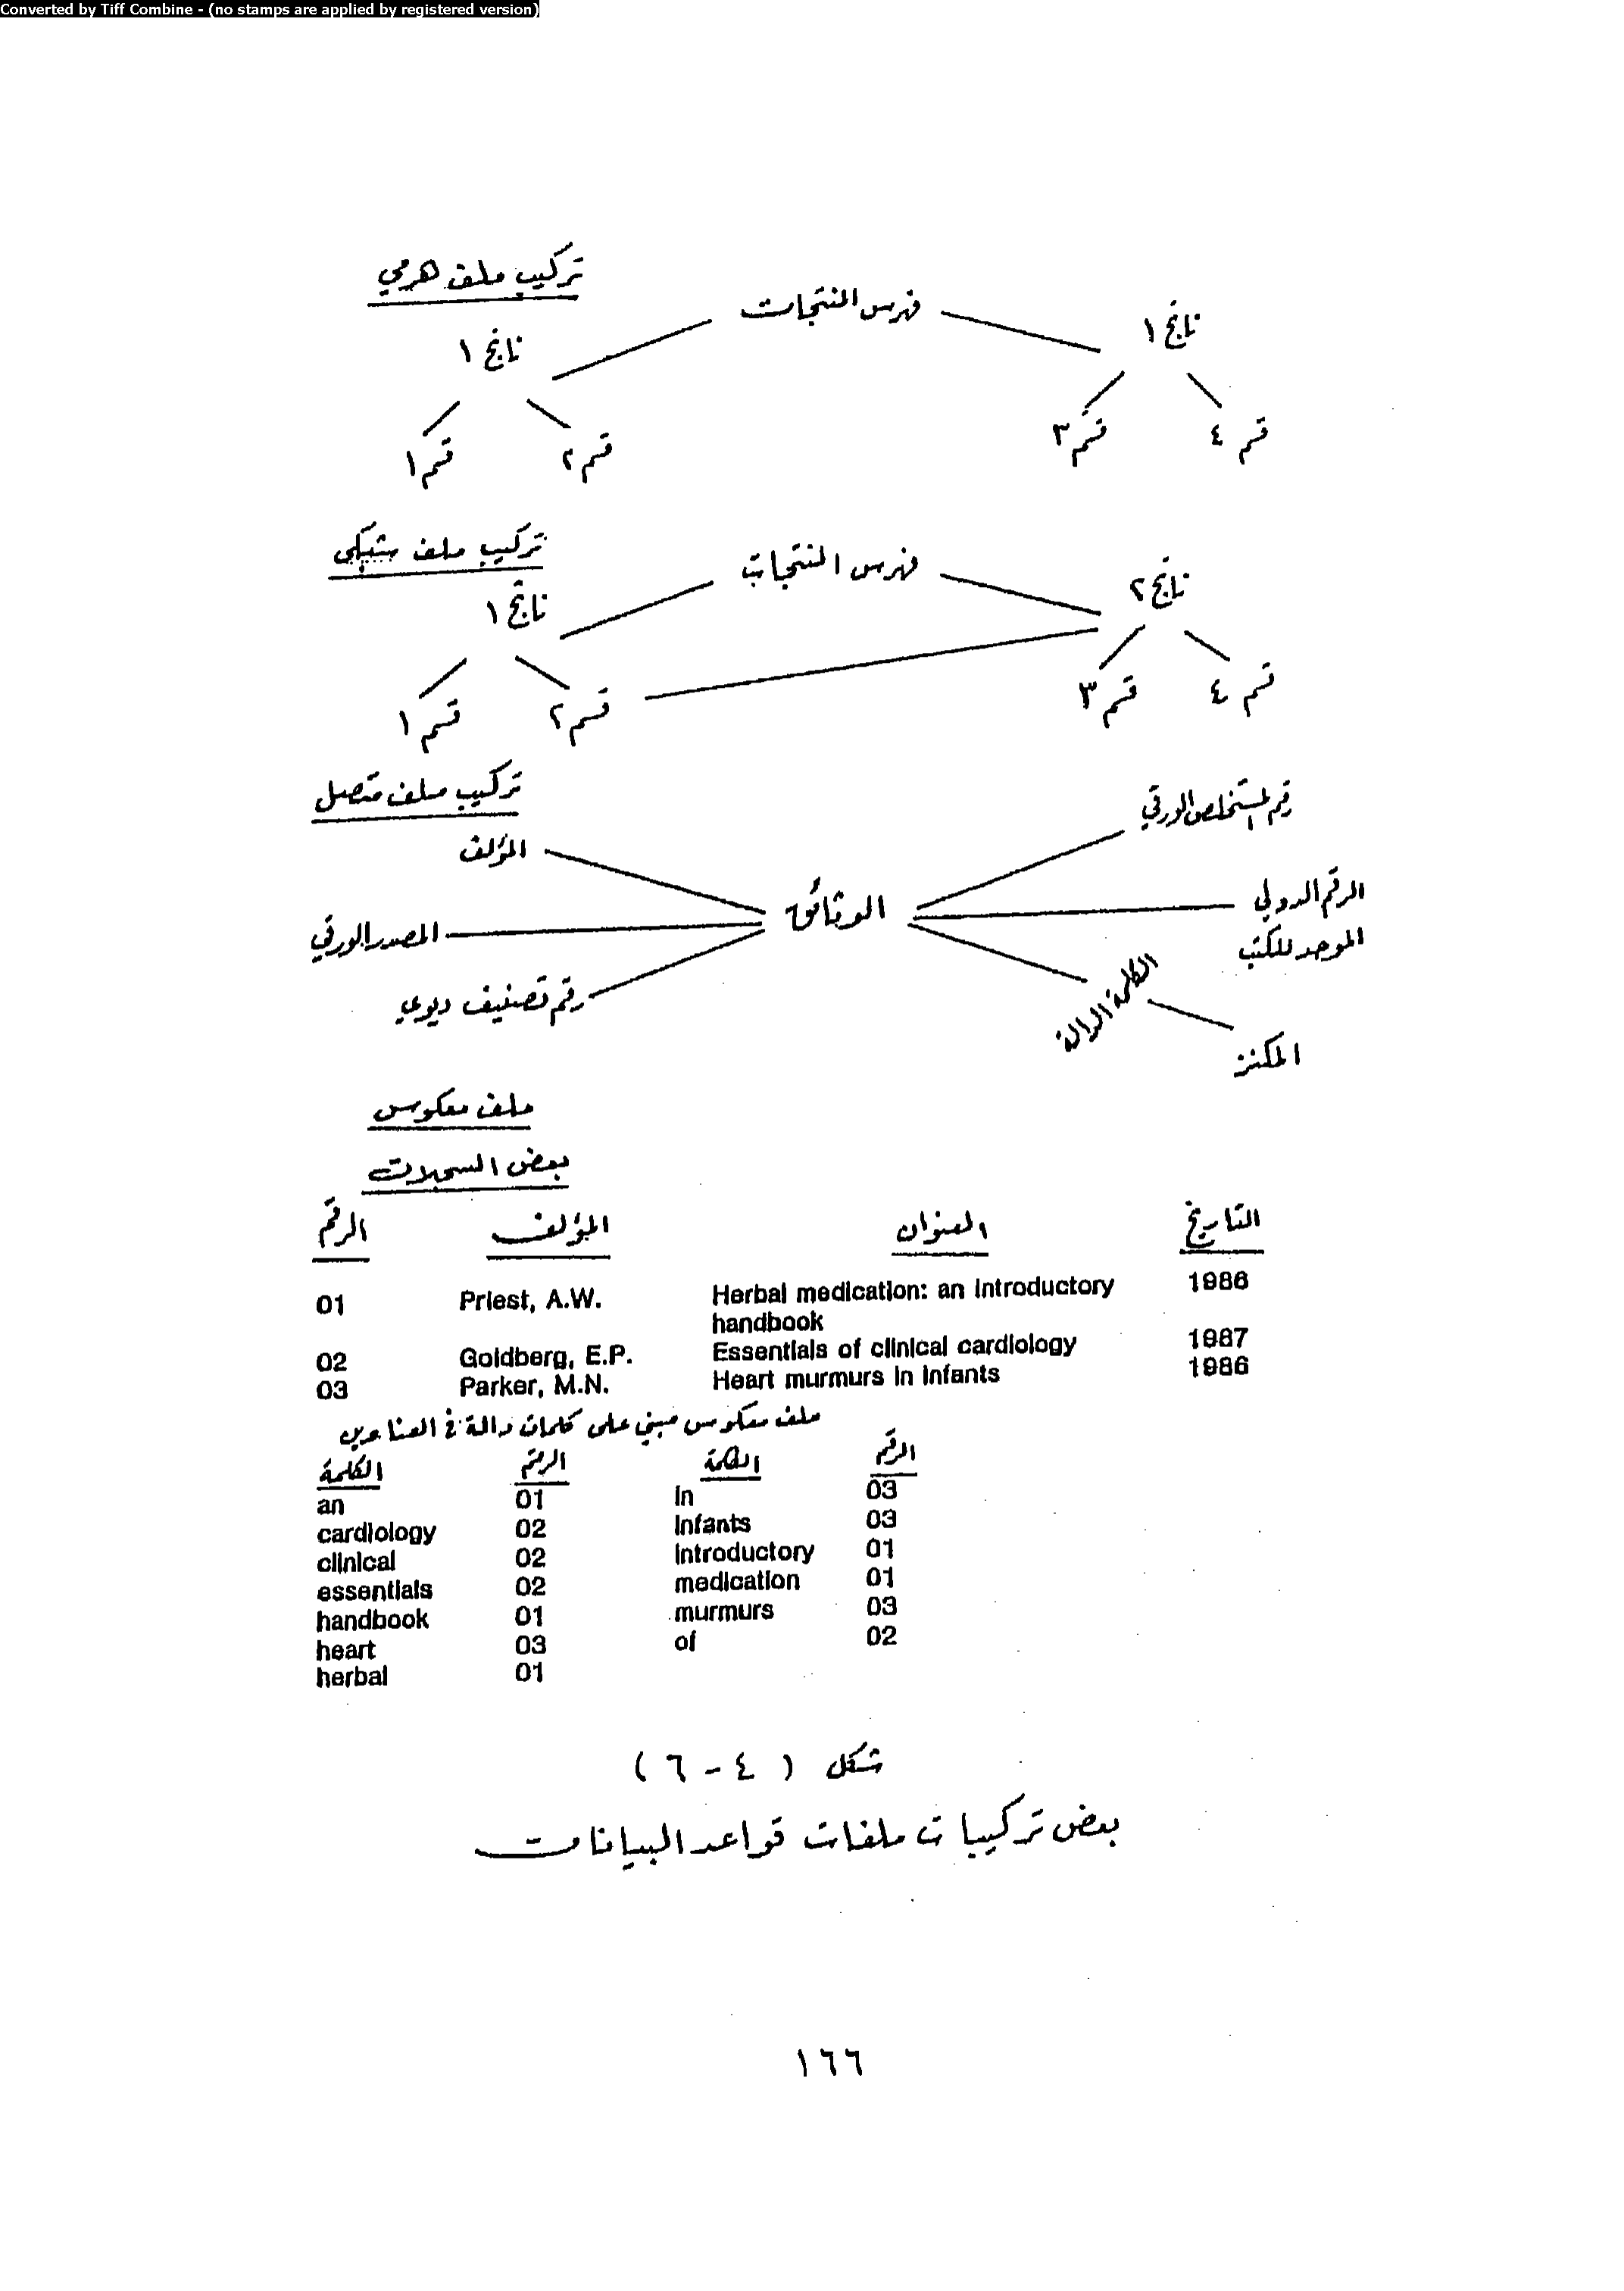 Converted by Tiff Combine - (no stamps are applied by registered version)
تركيب ملف هرمي
فهرس المنتجات
ناتج ١
ناتج ١
قسم ١
قسم ٢
قسم ٣
قسم ٤
تركيب ملف شبكي
فهرس المنتجات
ناتج ١
ناتج ٢
قسم ١
قسم ٢
قسم ٣
قسم ٤
تركيب ملف متصل
رقم المستخلص الورقي
المؤلف
الوثائق
الرقم الدولي
الموحد للكتب
المصدر الورقي
رقم تصنيف ديوي
الكلمة الدالة
المكنز
ملف معكوس
بعض السجلات
الرقم المؤلف العنوان التاريخ
01 Priest, A.W. Herbal medication: an introductory 1986
handbook
02 Goldberg, E.P. Essentials of clinical cardiology 1987
03 Parker, M.N. Heart murmurs in infants 1986
ملف معكوس مبني على كلمات دالة في العناوين
الكلمة الرقم الكلمة الرقم
an 01 in 03
cardiology 02 infants 03
clinical 02 introductory 01
essentials 02 medication 01
handbook 01 murmurs 03
heart 03 of 02
herbal 01
شكل ( ٤ - ٦ )
بعض تركيبات ملفات قواعد البيانات
١٦٦